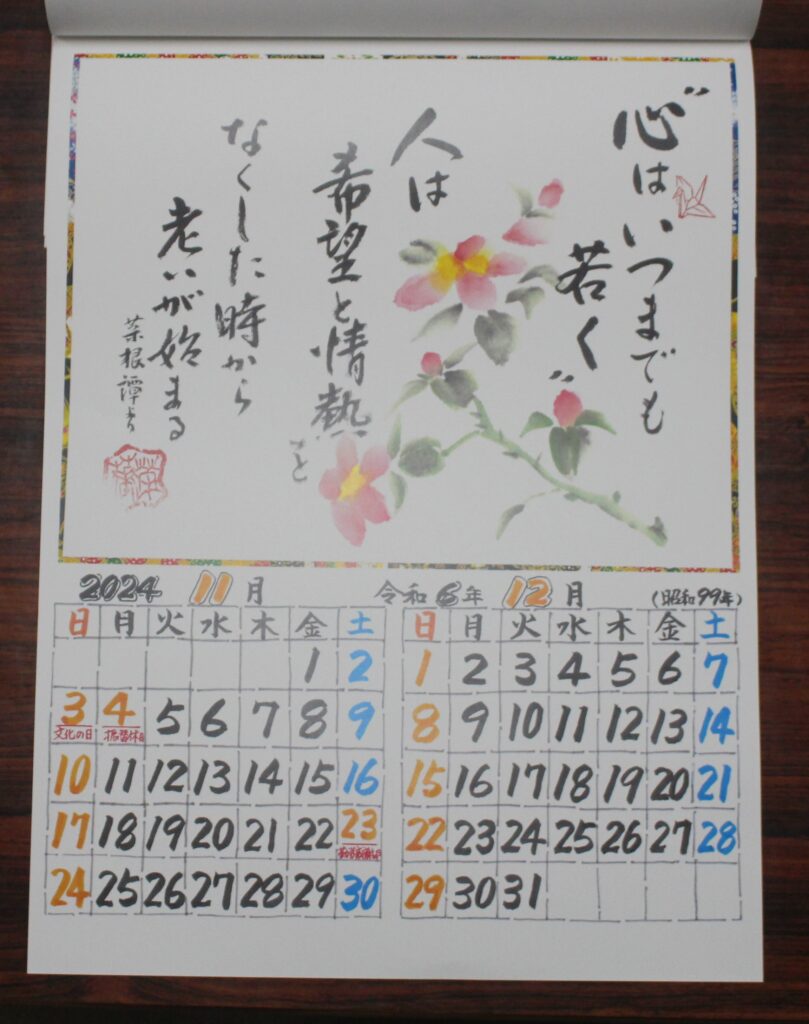 〝心はいつまでも
若く〟
人は
希望と情熱を
なくした時から
老いが始まる
菜根譚より
2024 11月
日 月 火 水 木 金 土
1 2
3 4 5 6 7 8 9
文化の日 振替休日
10 11 12 13 14 15 16
17 18 19 20 21 22 23
勤労感謝の日
24 25 26 27 28 29 30
令和6年 12月 (昭和99年)
日 月 火 水 木 金 土
1 2 3 4 5 6 7
8 9 10 11 12 13 14
15 16 17 18 19 20 21
22 23 24 25 26 27 28
29 30 31